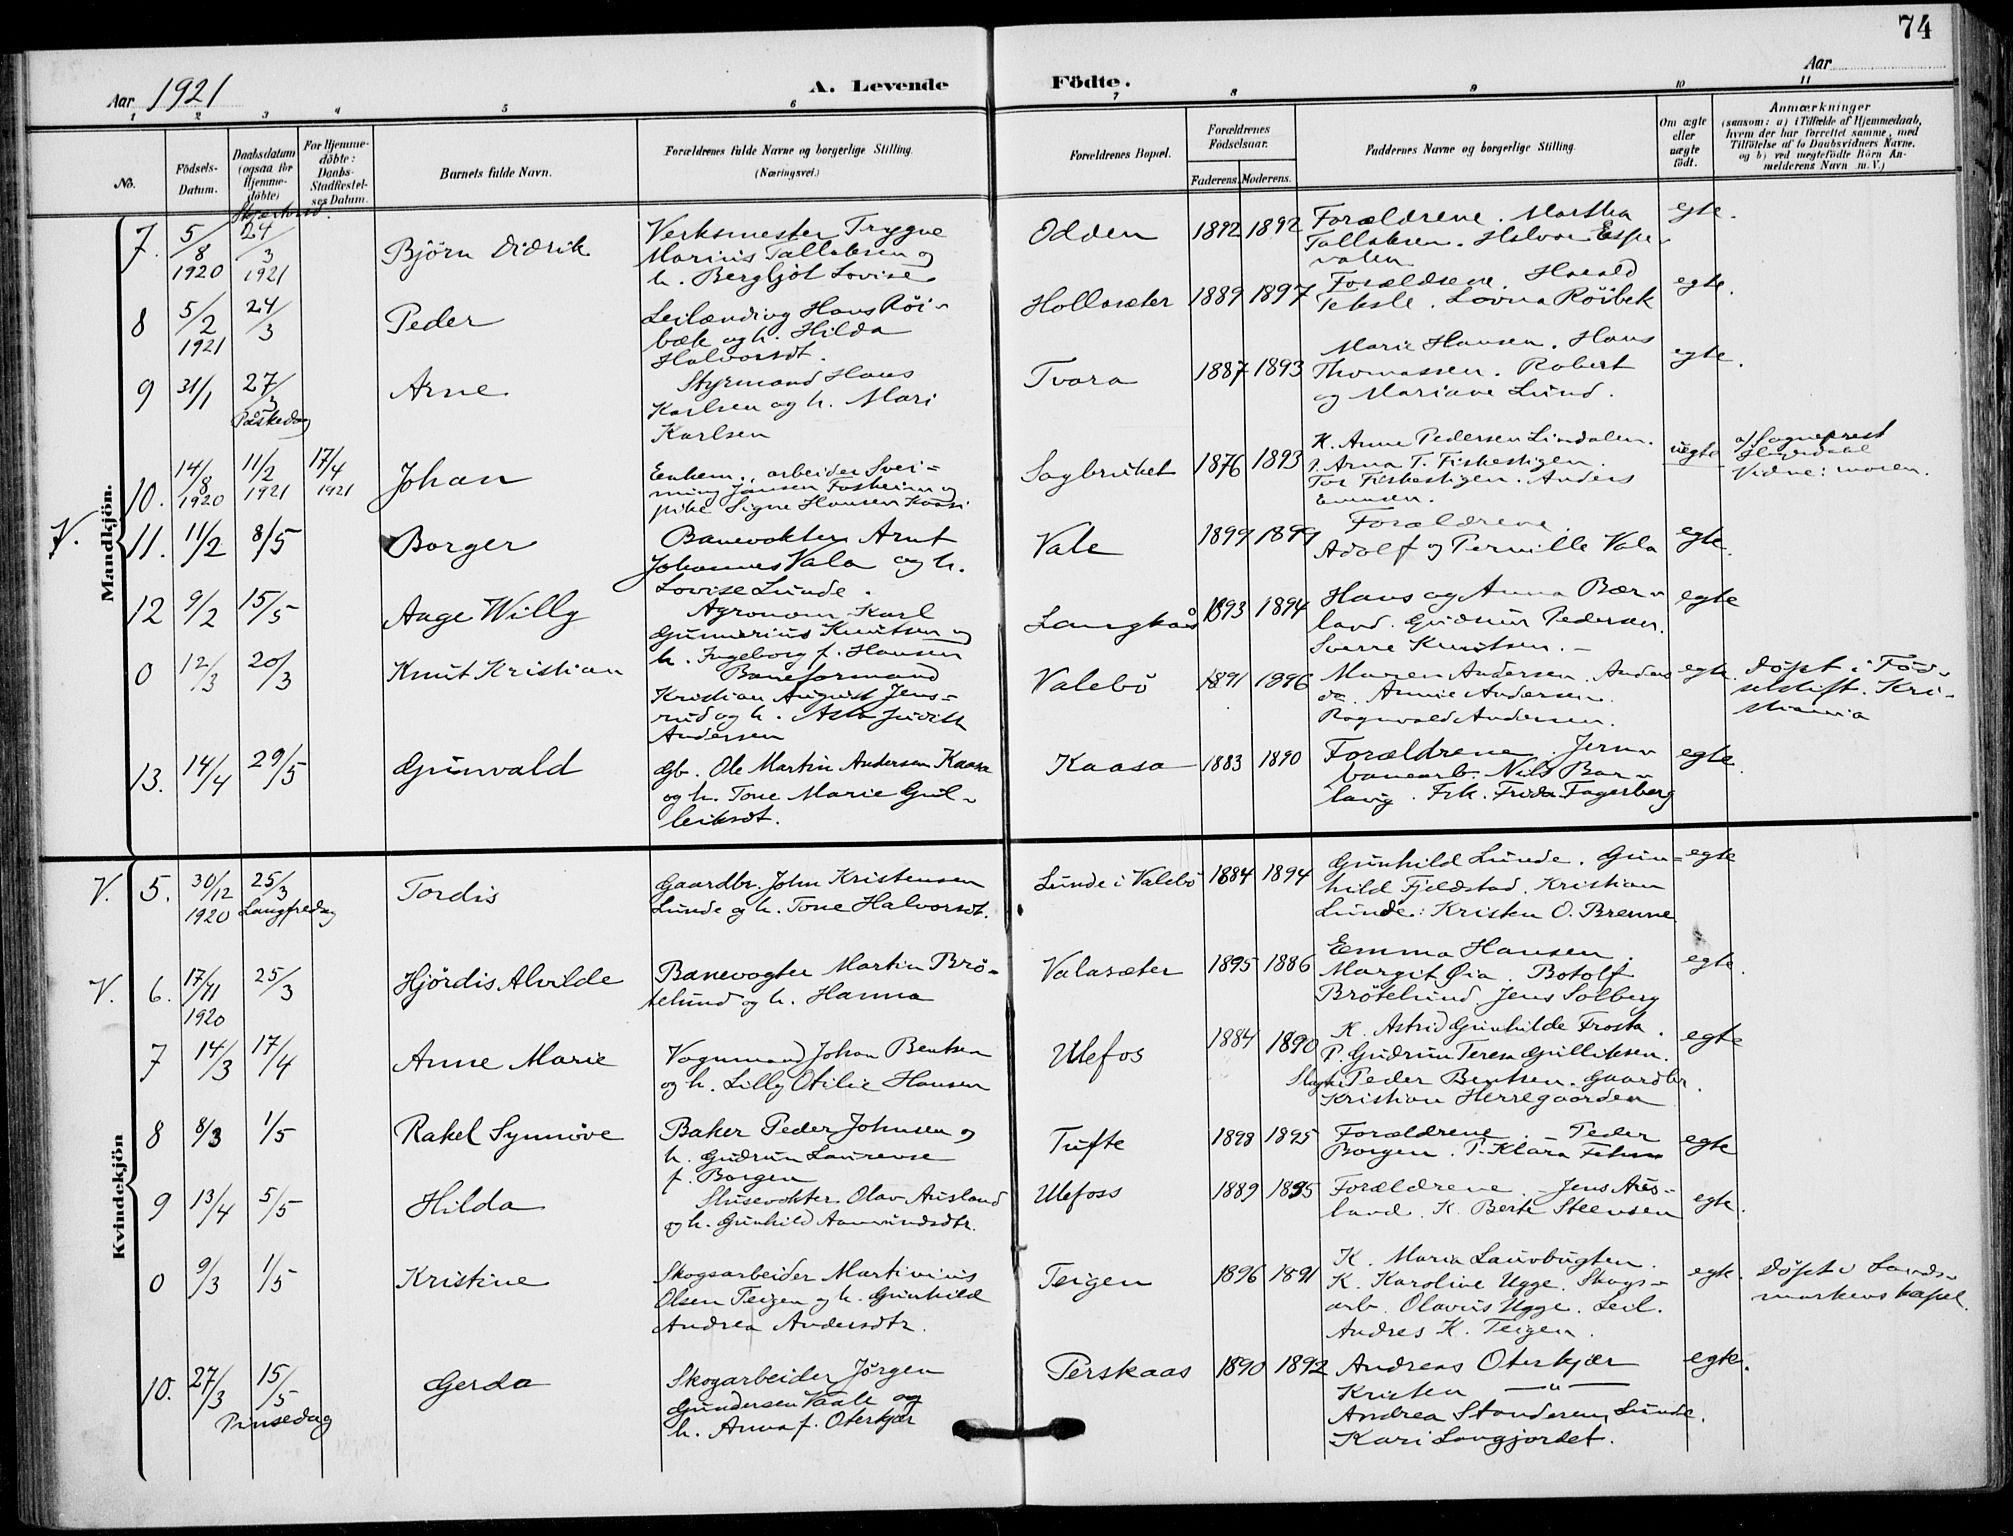 74
Aar 1921
A. Levende Födte.
Aar
1 2 3 4 5 6 7 8 9 10 11
No.
Födsels-
Datum.
Daabsdatum
(ogsaa for
Hjemme-
döbte)
For Hjemme-
döbte:
Daabs-
Stadfæstel-
ses Datum.
Barnets fulde Navn.
Forældrenes fulde Navne og borgerlige Stilling.
(Næringsvei.)
Forældrenes Bopæl.
Forældrenes
Födselsaar.
Faderens. Moderens.
Faddernes Navne og borgerlige Stilling.
Om ægte
eller
uægte
født.
Anmærkninger
(saasom: a) i Tilfælde af Hjemmedaab,
hvem der har forrettet samme, med
Tilföielse af to Daabsvidners Navne.
og b) ved uegtefödte Börn An-
melderens Navn m. V.)
Mandkjön.
7. 5/8 1920 Skjærtorsd. 24/3 1921 Björn Didrik
Verksmester Trygve
Marius Tallaksen og
h. Bergljot Lovise
Odden 1892 1892
Forældrene. Martha
Tallaksen. Halvor Espe-
valen
egte.
8 5/2 1921 24/3 Peder
Leilænding Hans Röi-
bæk og h. Hilda
Halvorsdt.
Hollasæter 1889 1897
Forældrene. Harald
Teksle. Lovna Röibek
egte.
9 31/1 27/3 Påskedag Arne
Styrmand Hans
Karlsen og h. Mari
Karlsen
Tvara 1887 1893
Marie Hansen. Hans
Thomassen. Robert
og Mariane Lund.
egte.
10. 14/8 1920 11/2 1921 17/4 1921 Johan
Enkem., arbeider Svei-
ning Jansen Fosheim og
pike Signe Hansen Kaasi
Sagbruket 1876 1893
K. Anne Pedersen Lindalen.
P. Arna T. Fiskestigen.
Tor Fiskestigen. Anders
uegte
af Sogneprest
Vidne: moren.
V. 11. 11/2 8/5 Borger
Banevokter Arnt
Johannes Vala og h.
Lovise Lunde.
Vale 1899 1899
Forældrene.
Adolf og Pernille Vala
egte.
12 9/2 15/5 Aage Willy
Agronom Karl
Gunnerius Knutsen og
h. Ingeborg f. Hansen
Langkås 1893 1894
Hans og Anna Bær-
land. Gudrun Pedersen.
Sverre Knutsen. -
egte
0 12/3 20/3 Knut Kristian
Baneformand
Kristian August Jens-
rud og h. Asta Judith
Andersen
Valebö 1891 1896
Maren Andersen. Anders
og Annie Andersen.
Ragnvald Andersen.
egte.
Döpt i Fød-
selstift. Kri-
stiania
13. 14/4 29/5 Gunvald
Gb. Ole Martin Andersen Kaasa
og h. Tone Marie Gul-
leiksdt.
Kaasa 1883 1890
Forældrene. Jern-
banearb. Nils Bor-
lavig. Frk. Frida Fagerberg
egte.
Kvindekjön
V. 5. 30/12 1920 25/3 Langfredag Tordis
Gaardbr. John Kristensen
Lunde og h. Tone Halvorsdt.
Lunde i Valebö 1884 1894
Gunhild Lunde. Gun-
hild Fjeldstad. Kristian
Lunde. Kristen O. Brenne
egte
V. 6. 17/11 1920 25/3 Hjördis Alvilde
Banevogter Martin Brö-
telund og h. Hanna
Valasæter 1895 1886
Emma Hansen,
Margit Øia. Botolf
Brötelund. Jens Solberg
egte.
7 14/3 17/4 Anne Marie
Vognmand Johan Bentsen
og h. Lilly Otilie Hansen
Ulefos 1884 1890
K. Astrid Gunhilde Frosta.
P. Gudrun Teresa Gulliksen.
Slagter Peder Bentsen. Gaardbr.
Kristian Herregaarden
egte
8 8/3 1/5 Rakel Synnöve
Baker Peder Johnsen og
h. Gudrun Laurense
f. Borgen
Tufte 1898 1895
Forældrene. Peder
Borgen. P. Klara
egte
9 13/4 5/5 Hilda
Slusevokter Olav Ausland
og h. Gunhild Aamundsdtr.
Ulefoss 1889 1895
Forældrene. Jens Aus-
land. K. Berte Steensen
egte.
0 9/3 1/5 Kristine
Skogsarbeider Martinius
Olsen Teigen og h. Gunhild
Andrea Andersdtr.
Teigen 1896 1891
K. Maria Lauvbugten.
K. Karoline Ugge. Skogs-
arb. Olavus Ugge. Leil.
Andres K. Teigen.
egte.
Döpt i Lands-
markens kapel.
10. 27/3 15/5 Pinsedag Gerda
Skogarbeider Jörgen
Gundersen Vaale og
h. Anna f. Oterkjær
Perskaas 1890 1892
Andreas Oterkjær
Kristen —"—
Andrea Standeren, Lunde.
Kari Langjordet.
egte.